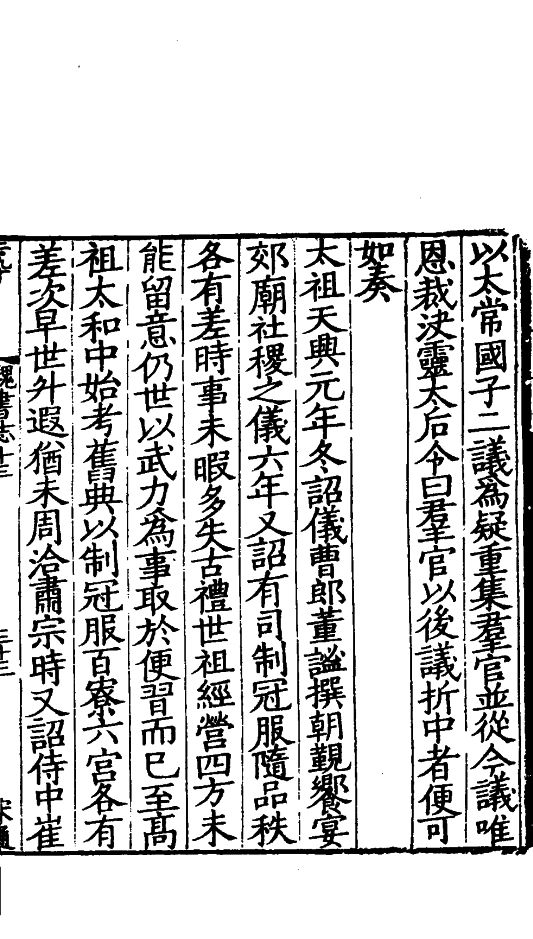 以太常國子二議爲疑重集羣官並從今議唯
恩裁決靈太后令曰羣官以後議折中者便可
如奏
太祖天興元年冬詔儀曹郎董謐撰朝覲饗宴
郊廟社稷之儀六年又詔有司制冠服隨品秩
各有差時事未暇多失古禮世祖經營四方未
能留意仍世以武力爲事取於便習而已至高
祖太和中始考舊典以制冠服百寮六宮各有
差次早世升遐猶未周洽肅宗時又詔侍中崔
魏書志十三
二十三